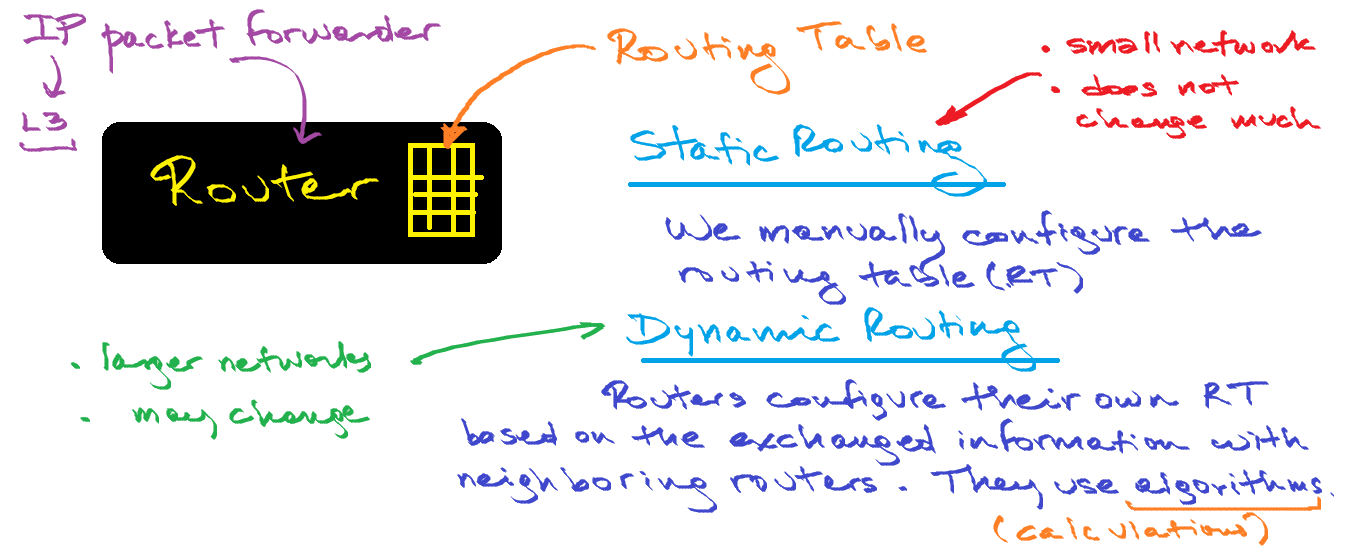 IP packet forwarder
L3
Router
Routing Table
• small network
• does not
change much
Static Routing
We manually configure the
routing table (RT)
Dynamic Routing
• larger networks
• may change
Routers configure their own RT
based on the exchanged information with
neighboring routers. They use algorithms.
(calculations)